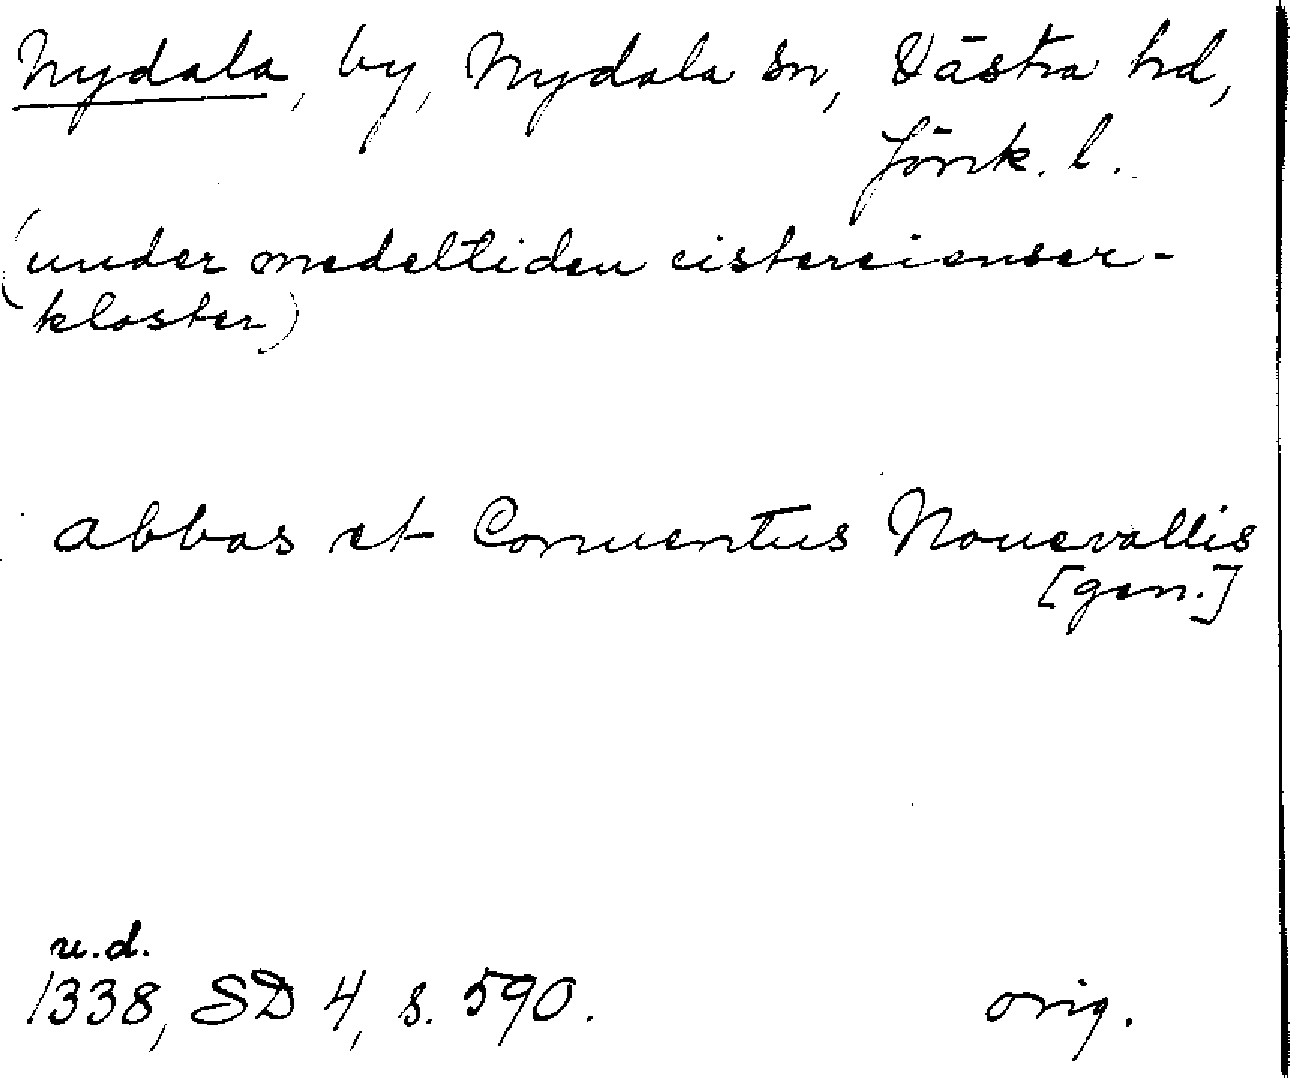 Nydala, by, Nydala sn, Västra hd,
Jönk. l.
(under medeltiden cistercienser-
kloster)
abbas et Conuentus Nouevallis
[gen.]
u.d.
1338, SD 4, s. 590. orig.